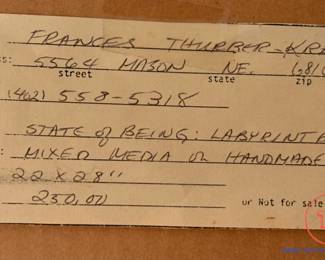 FRANCES THURBER-KR
s: 5564 MASON NE. 681
street state zip
(402) 558-5318
STATE of BEING: LABYRINT
: MIXED MEDIA ON HANDMADE
22 X 28"
250.00 or Not for sale